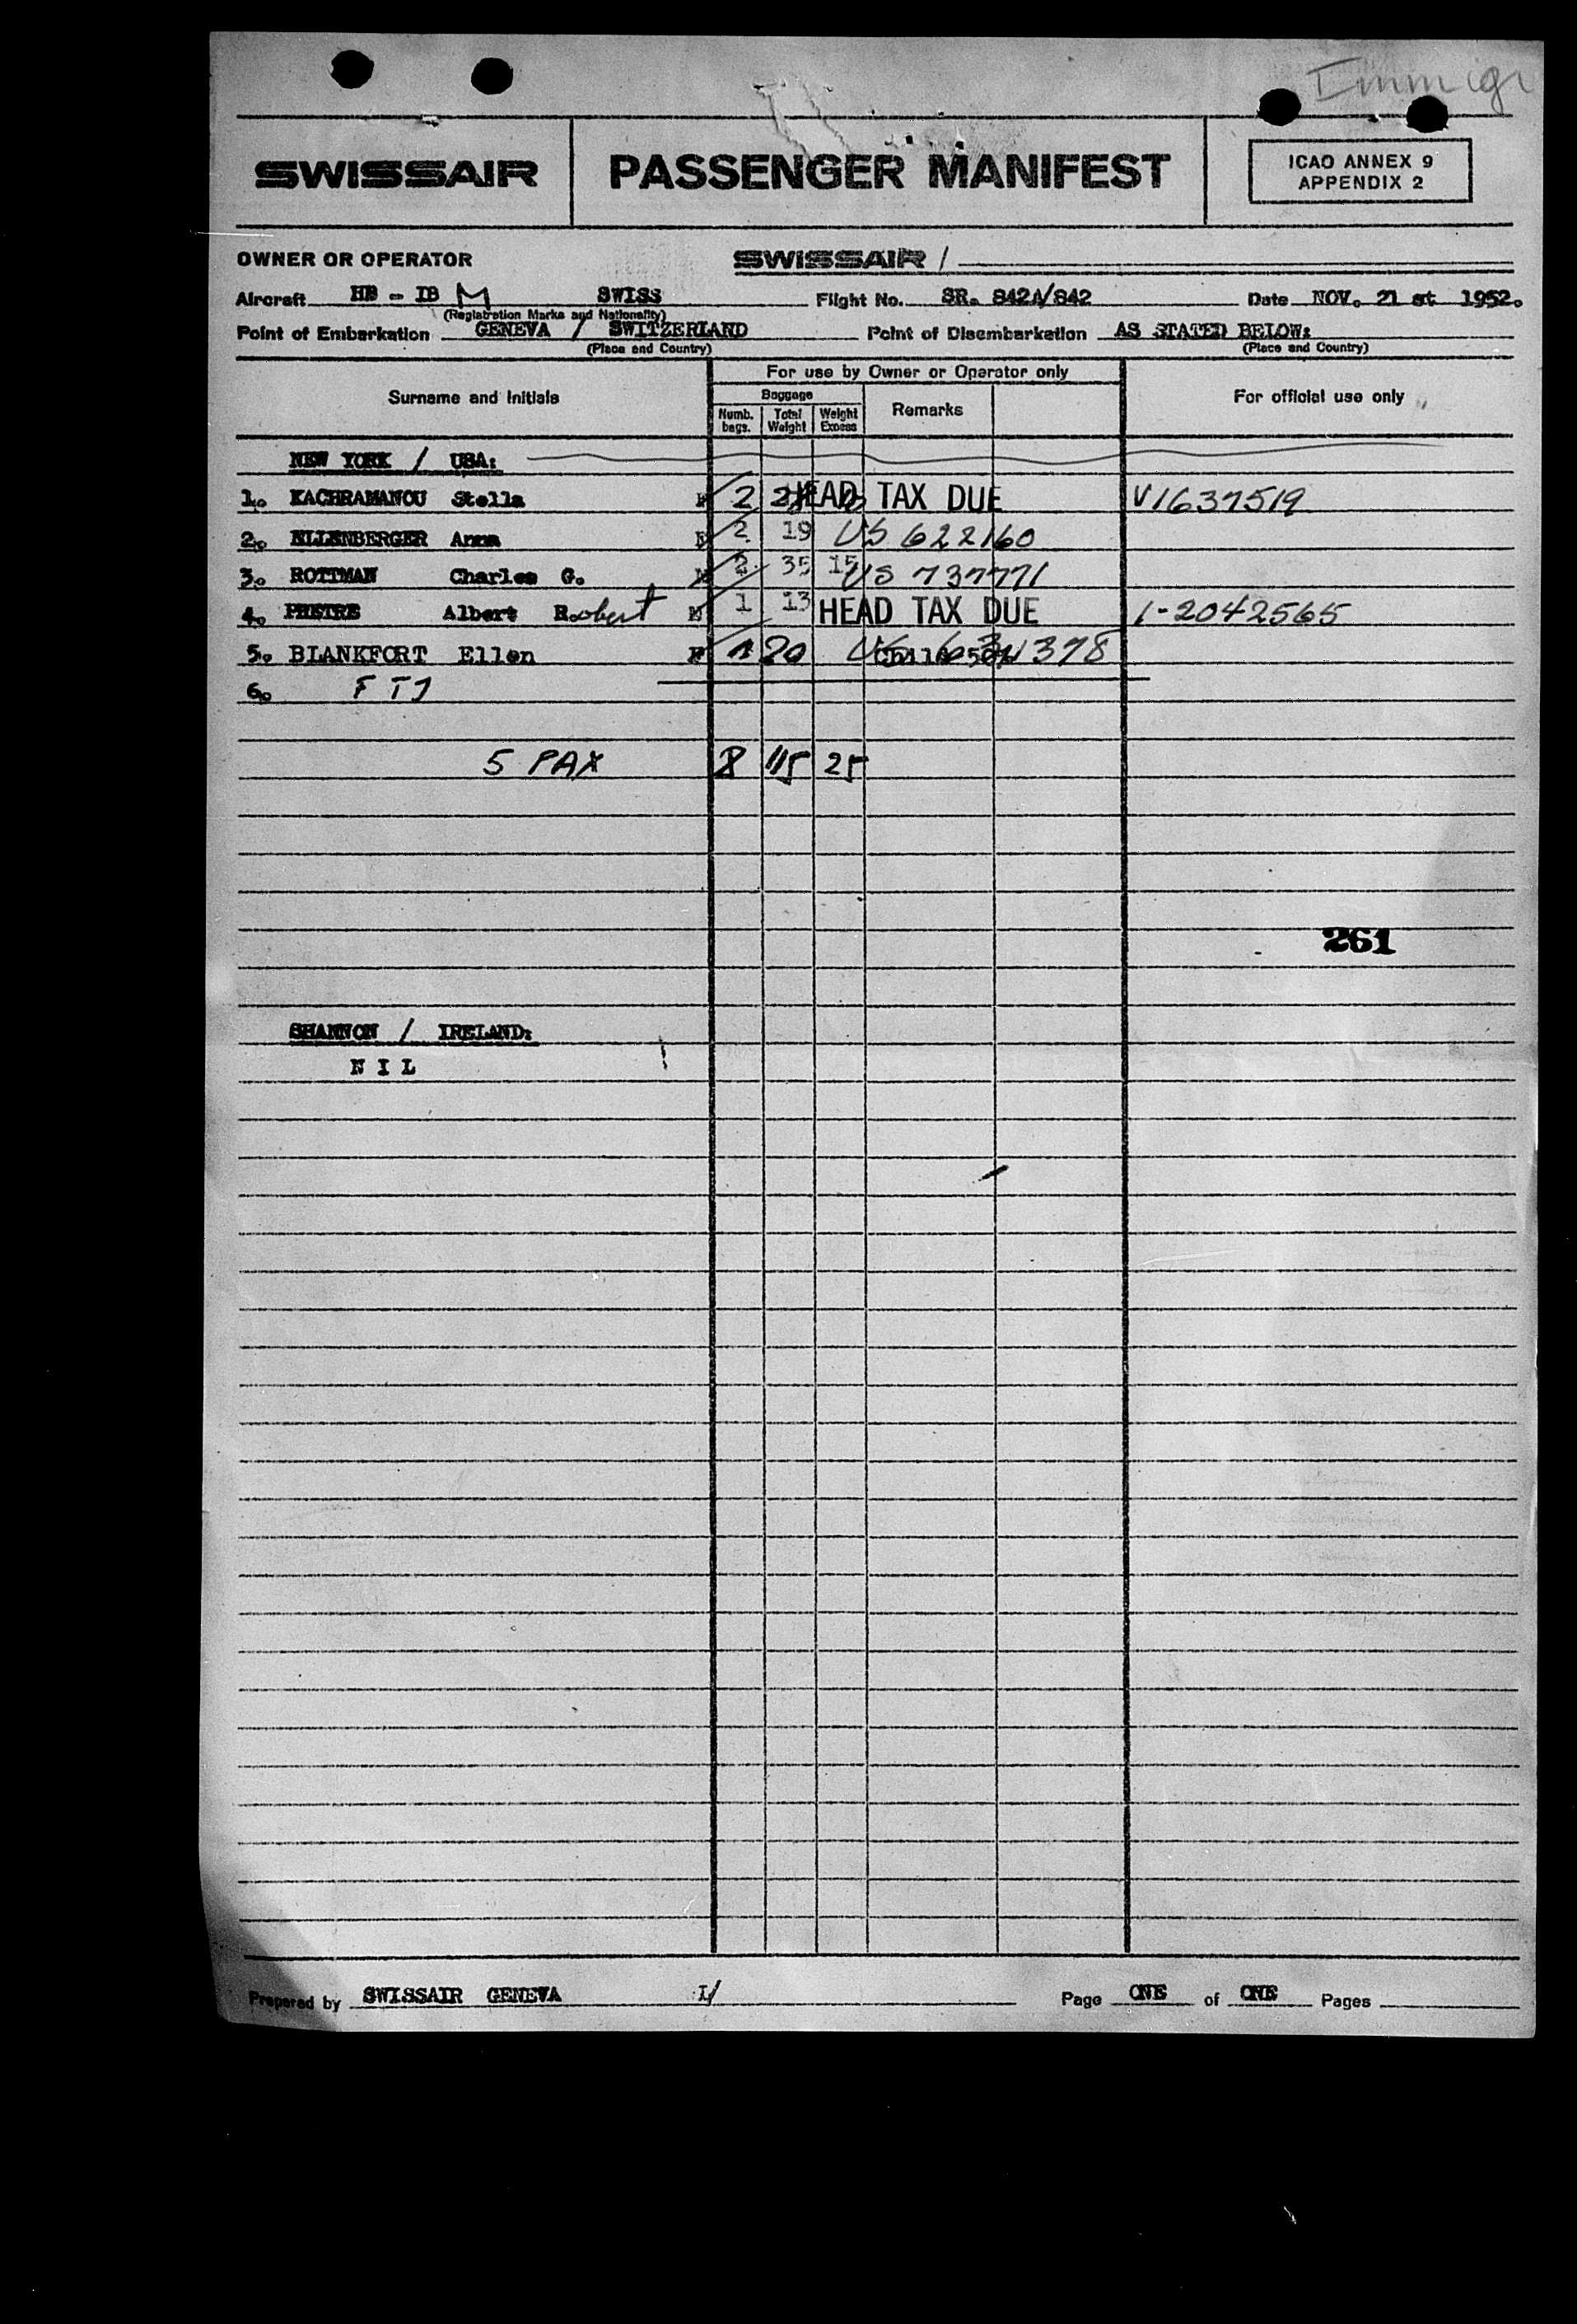 Immigr
SWISSAIR
PASSENGER MANIFEST
ICAO ANNEX 9
APPENDIX 2
OWNER OR OPERATOR SWISSAIR /
Aircraft HB - IB M SWISS Flight No. SR. 842A/842 Date NOV. 21 st 1952.
(Registration Marks and Nationality)
Point of Embarkation GENEVA / SWITZERLAND Point of Disembarkation AS STATED BELOW:
(Place and Country) (Place and Country)
For use by Owner or Operator only
Surname and Initials Baggage Remarks For official use only
Numb. bags. Total Weight Weight Excess
NEW YORK / USA:
1. KACHRAMANOU Stella 2 HEAD TAX DUE V1637519
2. ELLENBERGER Anna 2 19 US 622160
3. ROTTMAN Charles G. 2 35 15 US 737771
4. PRETRE Albert Robert M 1 13 HEAD TAX DUE 1-2042565
5. BLANKFORT Ellen F 1 20 378
6. F T J
5 PAX 8 115 25
261
SHANNON / IRELAND:
N I L
Prepared by SWISSAIR GENEVA I/ Page ONE of ONE Pages